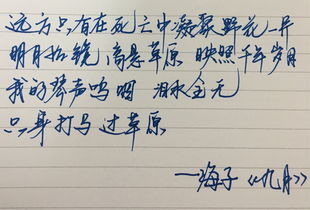 远方只有在死亡中凝聚野花一片
明月如镜 高悬草原 映照千年岁月
我的琴声呜咽 泪水全无
只身打马过草原
——海子《九月》